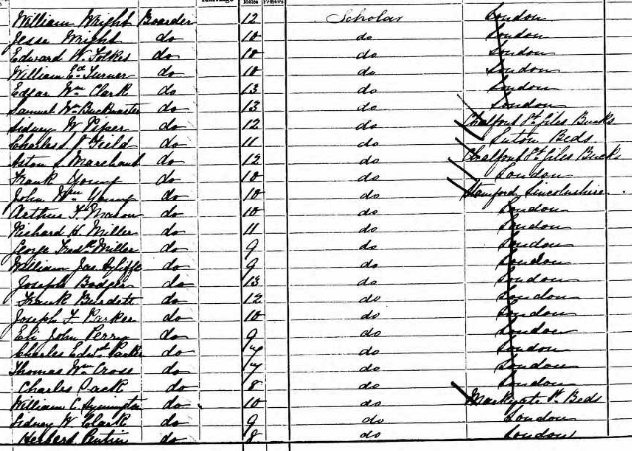 William Wright Boarder 12 Scholar London
Jesse Wright do 10 do London
Edward W. Folkes do 10 do London
William Ed. Turner do 10 do London
Edgar Wm Clark do 13 do London
Samuel Wm Buckmaster do 13 do London
Sidney W Piper do 12 do Chalfont St Giles Bucks
Charles Field do 11 do Luton Beds
Marchant do 12 do Chalfont St Giles Bucks
Frank Young do 10 do London
John Wm Young do 10 do Stamford Lincolnshire
Arthur do 10 do London
Richard H. Miller do 11 do London
George Fredk Miller do 9 do London
William Jas Ayliffe do 9 do London
Joseph Badger do 13 do London
Frank do 12 do London
Joseph F Parker do 10 do London
Eli John Perry do 9 do London
Charles Edwd Parker do 7 do London
Thomas Wm Cross do 7 do London
Charles Pack do 8 do London
William C Symington do 10 do Markyate St Beds
Sidney W Clark do 9 do London
Herbert do 8 do London